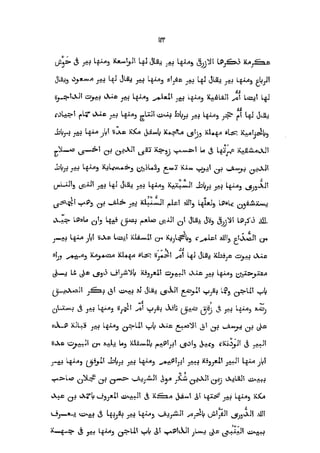 ١٢٣
عكرمة ذكرها الازرقى ومنها بير يقال لها الواسعة ومنها بير فى حوش
الرباع ومنها بير يقال لها بير عفراء ومنها بير يقال لها بير مسعود ويقال
لها ايضا أُمّ الفاغية ومنها بير المعلم ومنها بير عند بيوت
يقال لها أُمّ حجر ومنها بير برباط بنت التاج ومنها بير عند حمام اجياد،
وبالحزامية بحاء مهملة وزاى معجمة باسفل مكة عدة ابار منها بير برباط
الدمشقية عمرتها فى ما احسب زوجة تقى الدين بن
الدين يوسف بن ايوب سنة تسع وثمانين وخمسماية ومنها بير برباط
الدورى ومنها بير برباط السبتية ومنها بير يقال لها بير النبى والناس
يستشفون بماءها ولعلّها والله اعلم السنبلة بير خلف بن وهب الجمحى
ذكرها الازرقى وقال يقال ان النبى صلعم بصق فيها وان ماءها جيد
من الصُّداع والله اعلم، من المسفلة ايضا عدة ابار منها بير
عند بيوت عرفطة يقال لها أُمّ بحاء مهملة مضمومة وميم وراء
مفتوحتين ومنها بير عند البيوت المعروفة بالاشراف ذوى على مما يلى
باب الماجن ومما يقرب الموضع الذى يقال له بيت ابى بكر الصديق
رضّه ومنها بير فى زقاق ضيق نافذ بقرب أُمّ ومنها بير فى بستان
على بن يوسف بن ابى الاصبع عند باب الماجن ومنها بير قبالة هذه
البير فى وعند وادى ابراهيم بالمسفلة وما يليه من البيوت عدة
ابار منها البير المعروفة ببير ابراهيم ومنها بير برباط الموفق ومنها بير
ببيت القايد زين الدين شُكر مولى الشريف حسن بن عجلان صاحب
مكة ومنها بير تحتها الى اسفل مكة فى البيت المعروف باحمد بن عبد
الله الدورى الفراش بالحرم الشريف ومنها بير بقربها فى بيت يعرف
ببيت على يسار الذاهب الى باب الماجن ومنها بير فى جهة